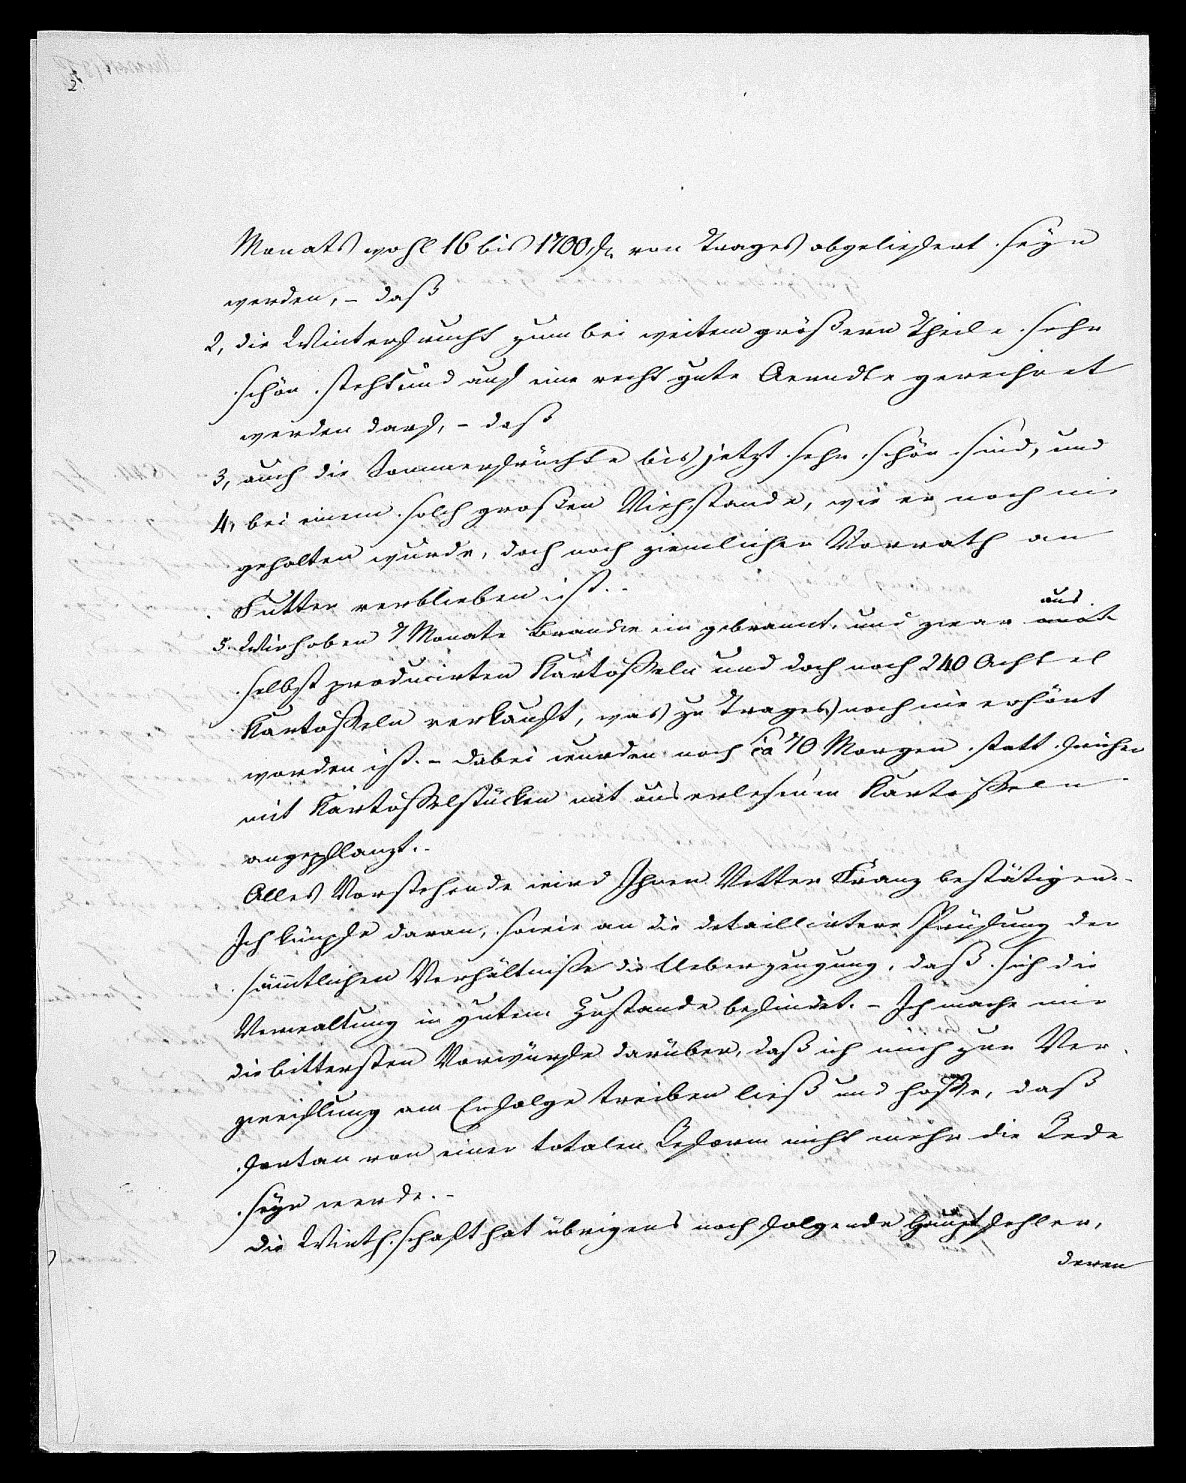 Monats wohl 16 bis 1700 fl. von Trages abgeliefert seyn
werden, – daß
2, die Winterfrucht zum bei weitem größern Theile sehr
schön steht und auf eine recht gute Aerndte gerechnet
werden darf, – daß
3, auch die Sommerfrüchte bis jetzt sehr schön sind, und
4, bei einem solch großen Viehstande, wie er noch nie
gehalten wurde, doch noch ziemlicher Vorrath an
Futter verblieben ist. –
5. Wir haben 7 Monate Brandwein gebrannt, und zwar aus
selbst producirten Kartoffeln und doch noch 240 Achtel
Kartoffeln verkauft, was zu Trages noch nie erhört
worden ist. – Dabei wurden noch ca 70 Morgen statt früher
mit Kartoffelstücken mit auserlesenen Kartoffeln
angepflanzt. –
Alles Vorstehende wird Ihnen Vetter Franz bestätigen. –
Ich knüpfe daran, sowie an die detaillirtere Prüfung der
sämmtlichen Verhältnisse die Ueberzeugung, daß sich die
Verwaltung in gutem Zustande befindet. – Ich mache mir
die bittersten Vorwürfe darüber, daß ich mich zur Ver-
zweiflung am Erfolge treiben ließ und hoffe, daß
fortan von einer totalen Reform nicht mehr die Rede
seyn werde. –
Die Wirthschaft hat übrigens noch folgende Hauptfehler,
deren